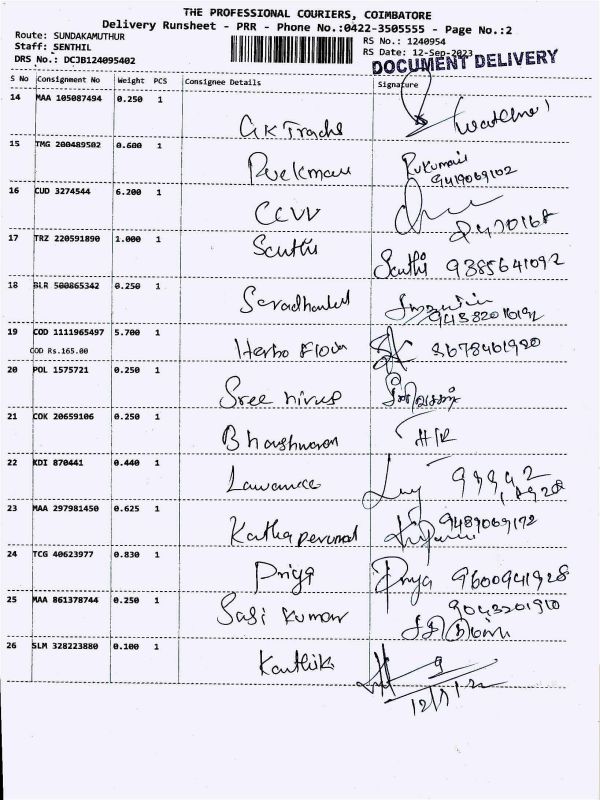 THE PROFESSIONAL COURIERS, COIMBATORE
Delivery Runsheet - PRR - Phone No.:0422-3505555 - Page No.:2
Route: SUNDAKAMUTHUR
RS No.: 1240954
Staff: SENTHIL
RS Date: 12-Sep-2023
DRS No.: DCJB124095402
DOCUMENT DELIVERY
S No Consignment No Weight PCS Consignee Details Signature
14 MAA 105087494 0.250 1
GK Tracks
15 TMG 200489502 0.600 1
Rukumani
9419069102
16 CUD 3274544 6.200 1
CCVV
17 TRZ 220591890 1.000 1
Santhi Santhi 9385641092
18 BLR 500865342 0.250 1
19 COD 1111965497 5.700 1
COD Rs.165.00
Herbo 8678461980
20 POL 1575721 0.250 1
Sree
21 COK 20659106 0.250 1
22 KDI 870441 0.440 1
Lawrance
23 MAA 297981450 0.625 1
9489069172
24 TCG 40623977 0.830 1
Priya Priya 9600941928
25 MAA 861378744 0.250 1
Sasi Kumar 9043201910
26 SLM 328223880 0.100 1
Karthik